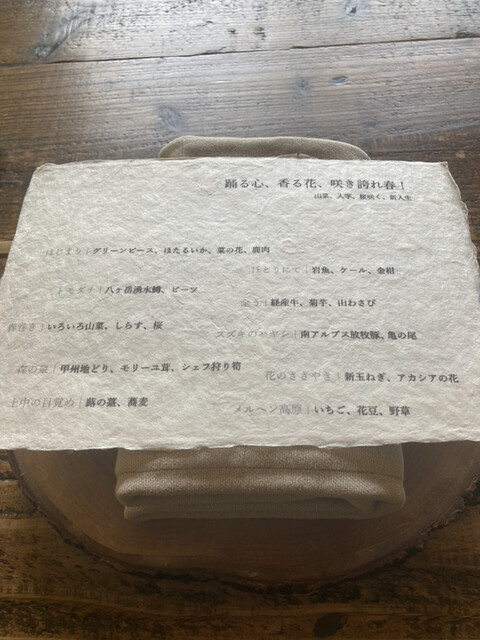 踊る心、香る花、咲き誇れ春！
山菜、入学、桜咲く、新入生
はじまり｜グリーンピース、ほたるいか、菜の花、鹿肉
ほとりにて｜岩魚、ケール、金柑
トモダチ｜八ヶ岳湧水鱒、ビーツ
経産牛、菊芋、山わさび
春巻き｜いろいろ山菜、しらす、桜
スズキのハヤシ｜南アルプス放牧豚、亀の尾
森の泉｜甲州地どり、モリーユ茸、シェフ狩り筍
花のささやき｜新玉ねぎ、アカシアの花
土中の目覚め｜蕗の薹、蕎麦
メルヘン高原｜いちご、花豆、野草